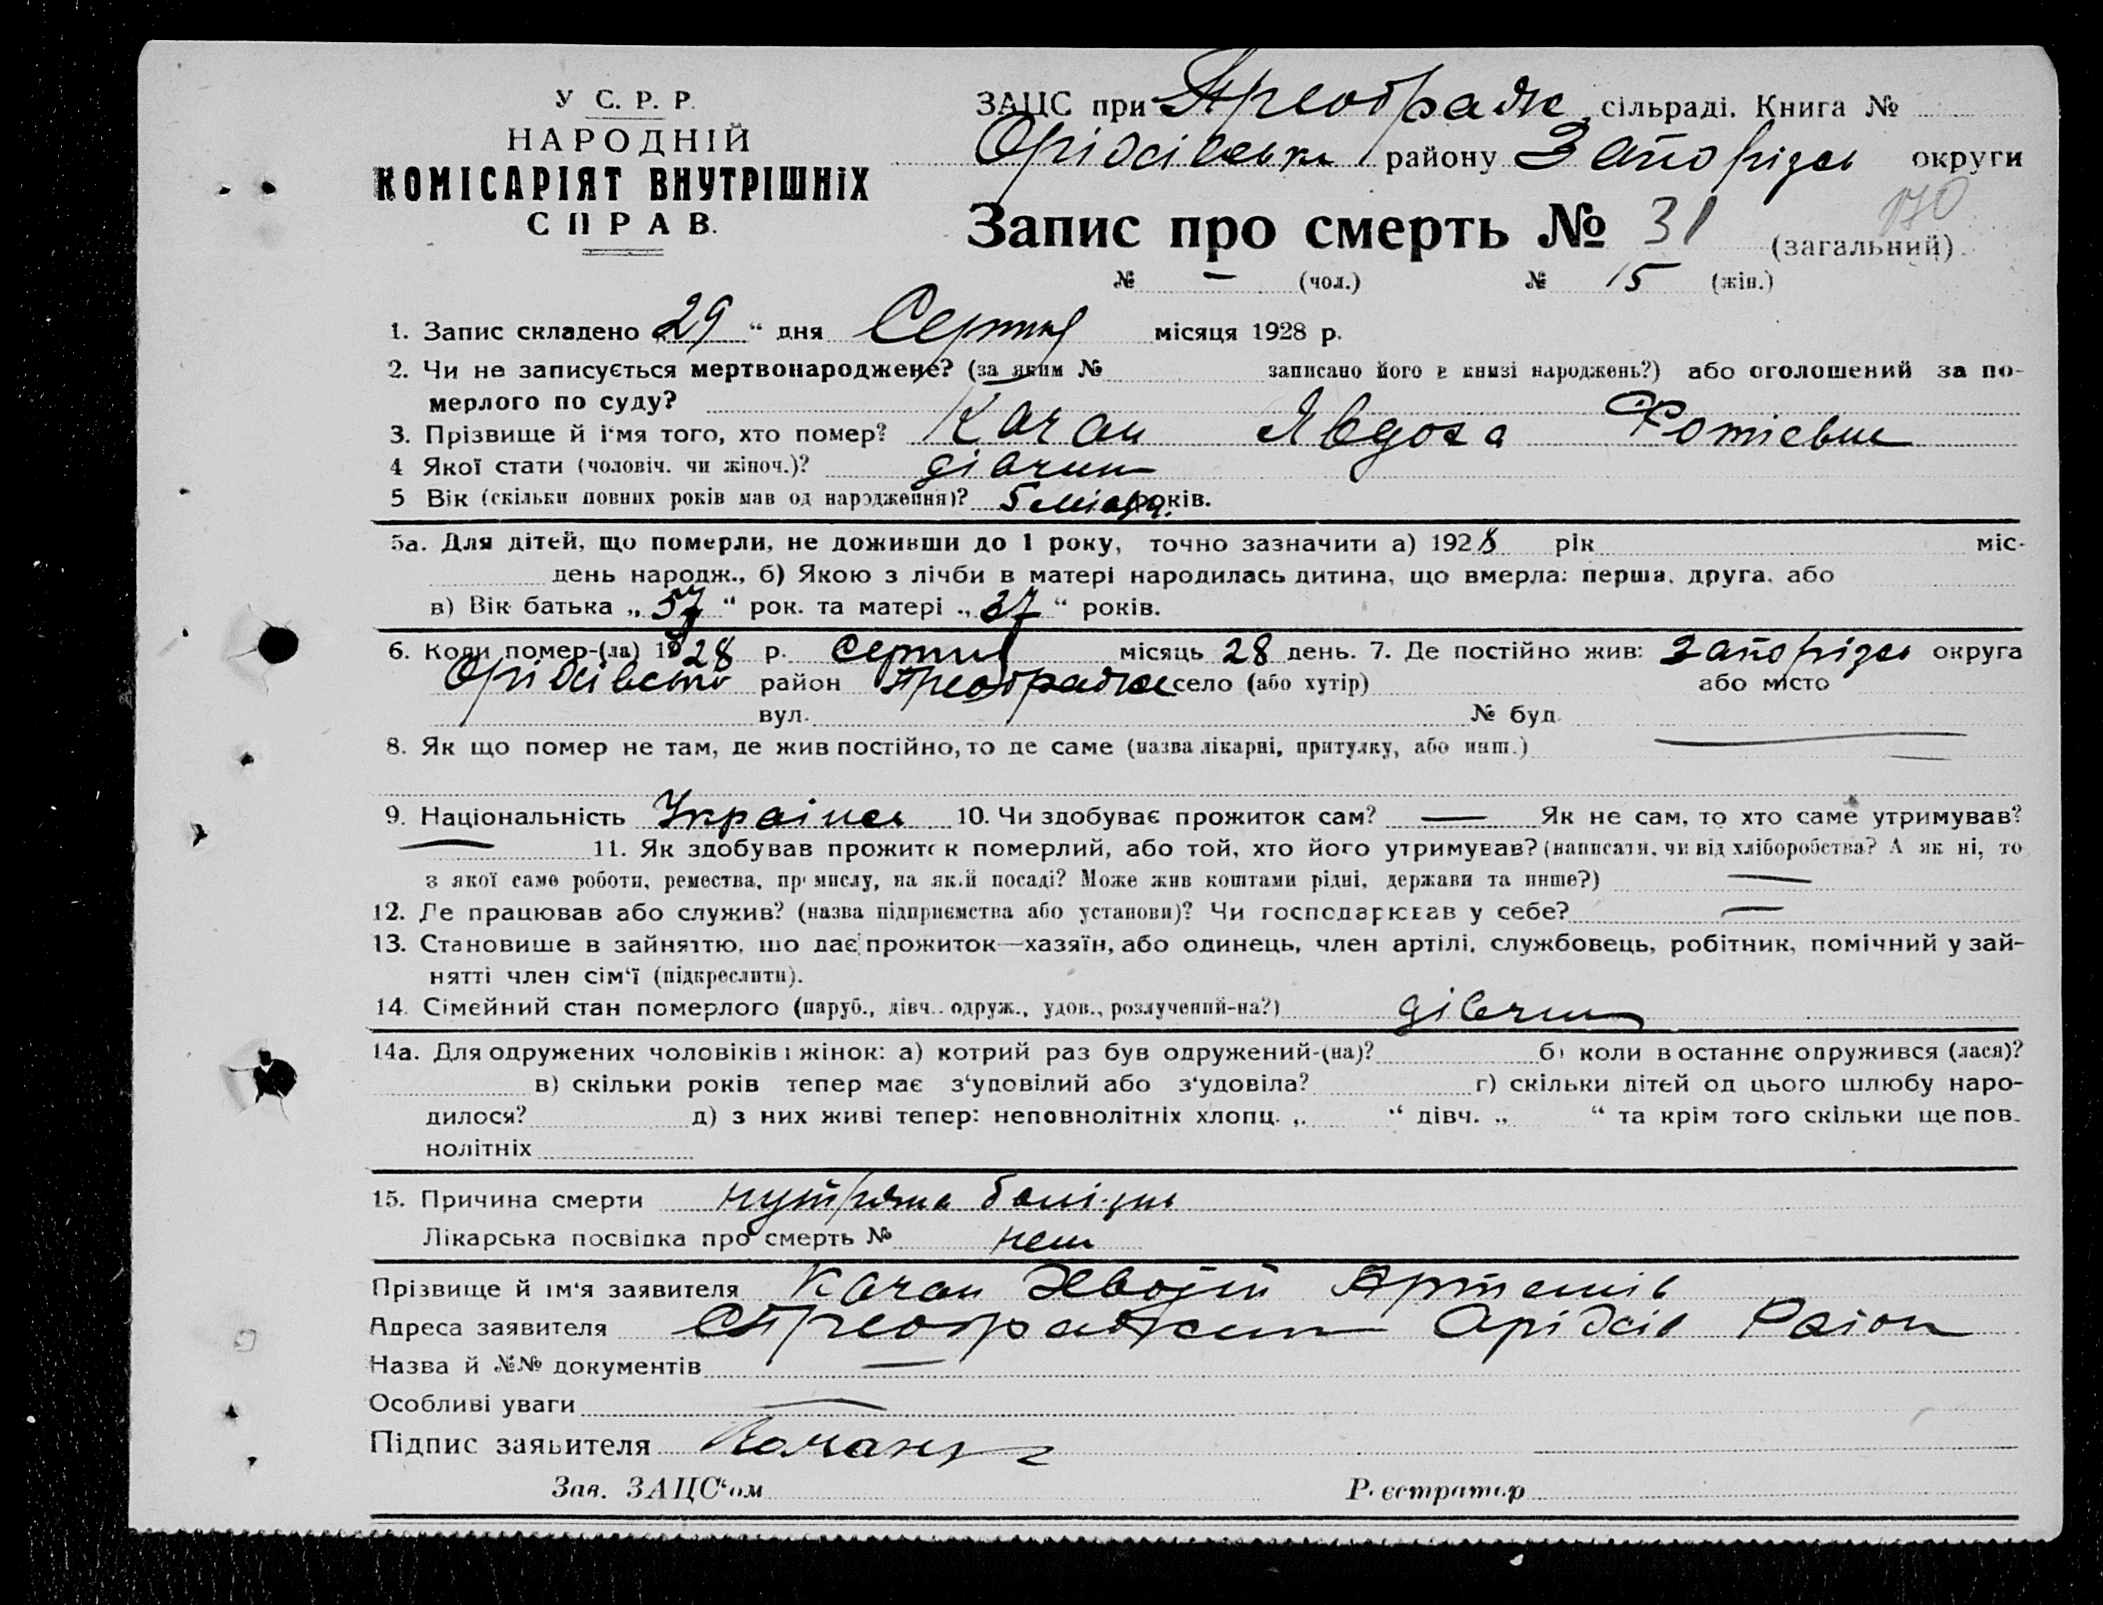 У С. Р. Р.
НАРОДНІЙ
КОМІСАРІЯТ ВНУТРІШНІХ
СПРАВ.
ЗАЦС при Преображ. сільраді. Книга №
Оріхівськ району Запоріз округи
170
Запис про смерть № 31 (загальний)
№ — (чол.) № 15 (жін.)
1. Запис складено „29“ дня Серпня місяця 1928 р.
2. Чи не записується мертвонароджене? (за яким № записано його в книзі народжень?) або оголошений за по-
мерлого по суду?
3. Прізвище й і'мя того, хто помер? Качан Явдоха Фотієвна
4 Якої стати (чоловіч. чи жіноч.)? дівчин
5 Вік (скільки повних років мав од народження)? 5 років.
5а. Для дітей, що померли, не доживши до 1 року, точно зазначити а) 1928 рік міс-
день народж., б) Якою з лічби в матері народилась дитина, що вмерла: перша, друга, або
в) Вік батька „57“ рок. та матері „37“ років.
6. Коли помер-(ла) 1928 р. серпня місяць 28 день. 7. Де постійно жив: Запоріз округа
Оріхівськ район Преображе село (або хутір) або місто
вул. № буд.
8. Як що помер не там, де жив постійно, то де саме (назва лікарні, притулку, або инш.) —
9. Національність Україн 10. Чи здобуває прожиток сам? — Як не сам, то хто саме утримував?
— 11. Як здобував прожиток померлий, або той, хто його утримував? (написати, чи від хліборобства? А як ні, то
з якої саме роботи, ремества, промислу, на якій посаді? Може жив коштами рідні, держави та инше?) —
12. Де працював або служив? (назва підприємства або установи)? Чи господарював у себе? —
13. Становище в зайняттю, що дає прожиток—хазяїн, або одинець, член артілі, службовець, робітник, помічний у зай-
нятті член сім'ї (підкреслити).
14. Сімейний стан померлого (паруб., дівч., одруж., удов., розлучений-на?) дівчин
14а. Для одружених чоловіків і жінок: а) котрий раз був одружений-(на)? б) коли в останнє одружився (лася)?
в) скільки років тепер має з'удовілий або з'удовіла? г) скільки дітей од цього шлюбу наро-
дилося? д) з них живі тепер: неповнолітніх хлопц. „ “ дівч. „ “ та крім того скільки ще пов-
нолітніх
15. Причина смерти нутряна болізнь
Лікарська посвідка про смерть № нет
Прізвище й ім'я заявителя Качан Артемів
Адреса заявителя Оріхів Раіон
Назва й №№ документів —
Особливі уваги —
Підпис заявителя Качан
Зав. ЗАЦС'ом Реєстратор